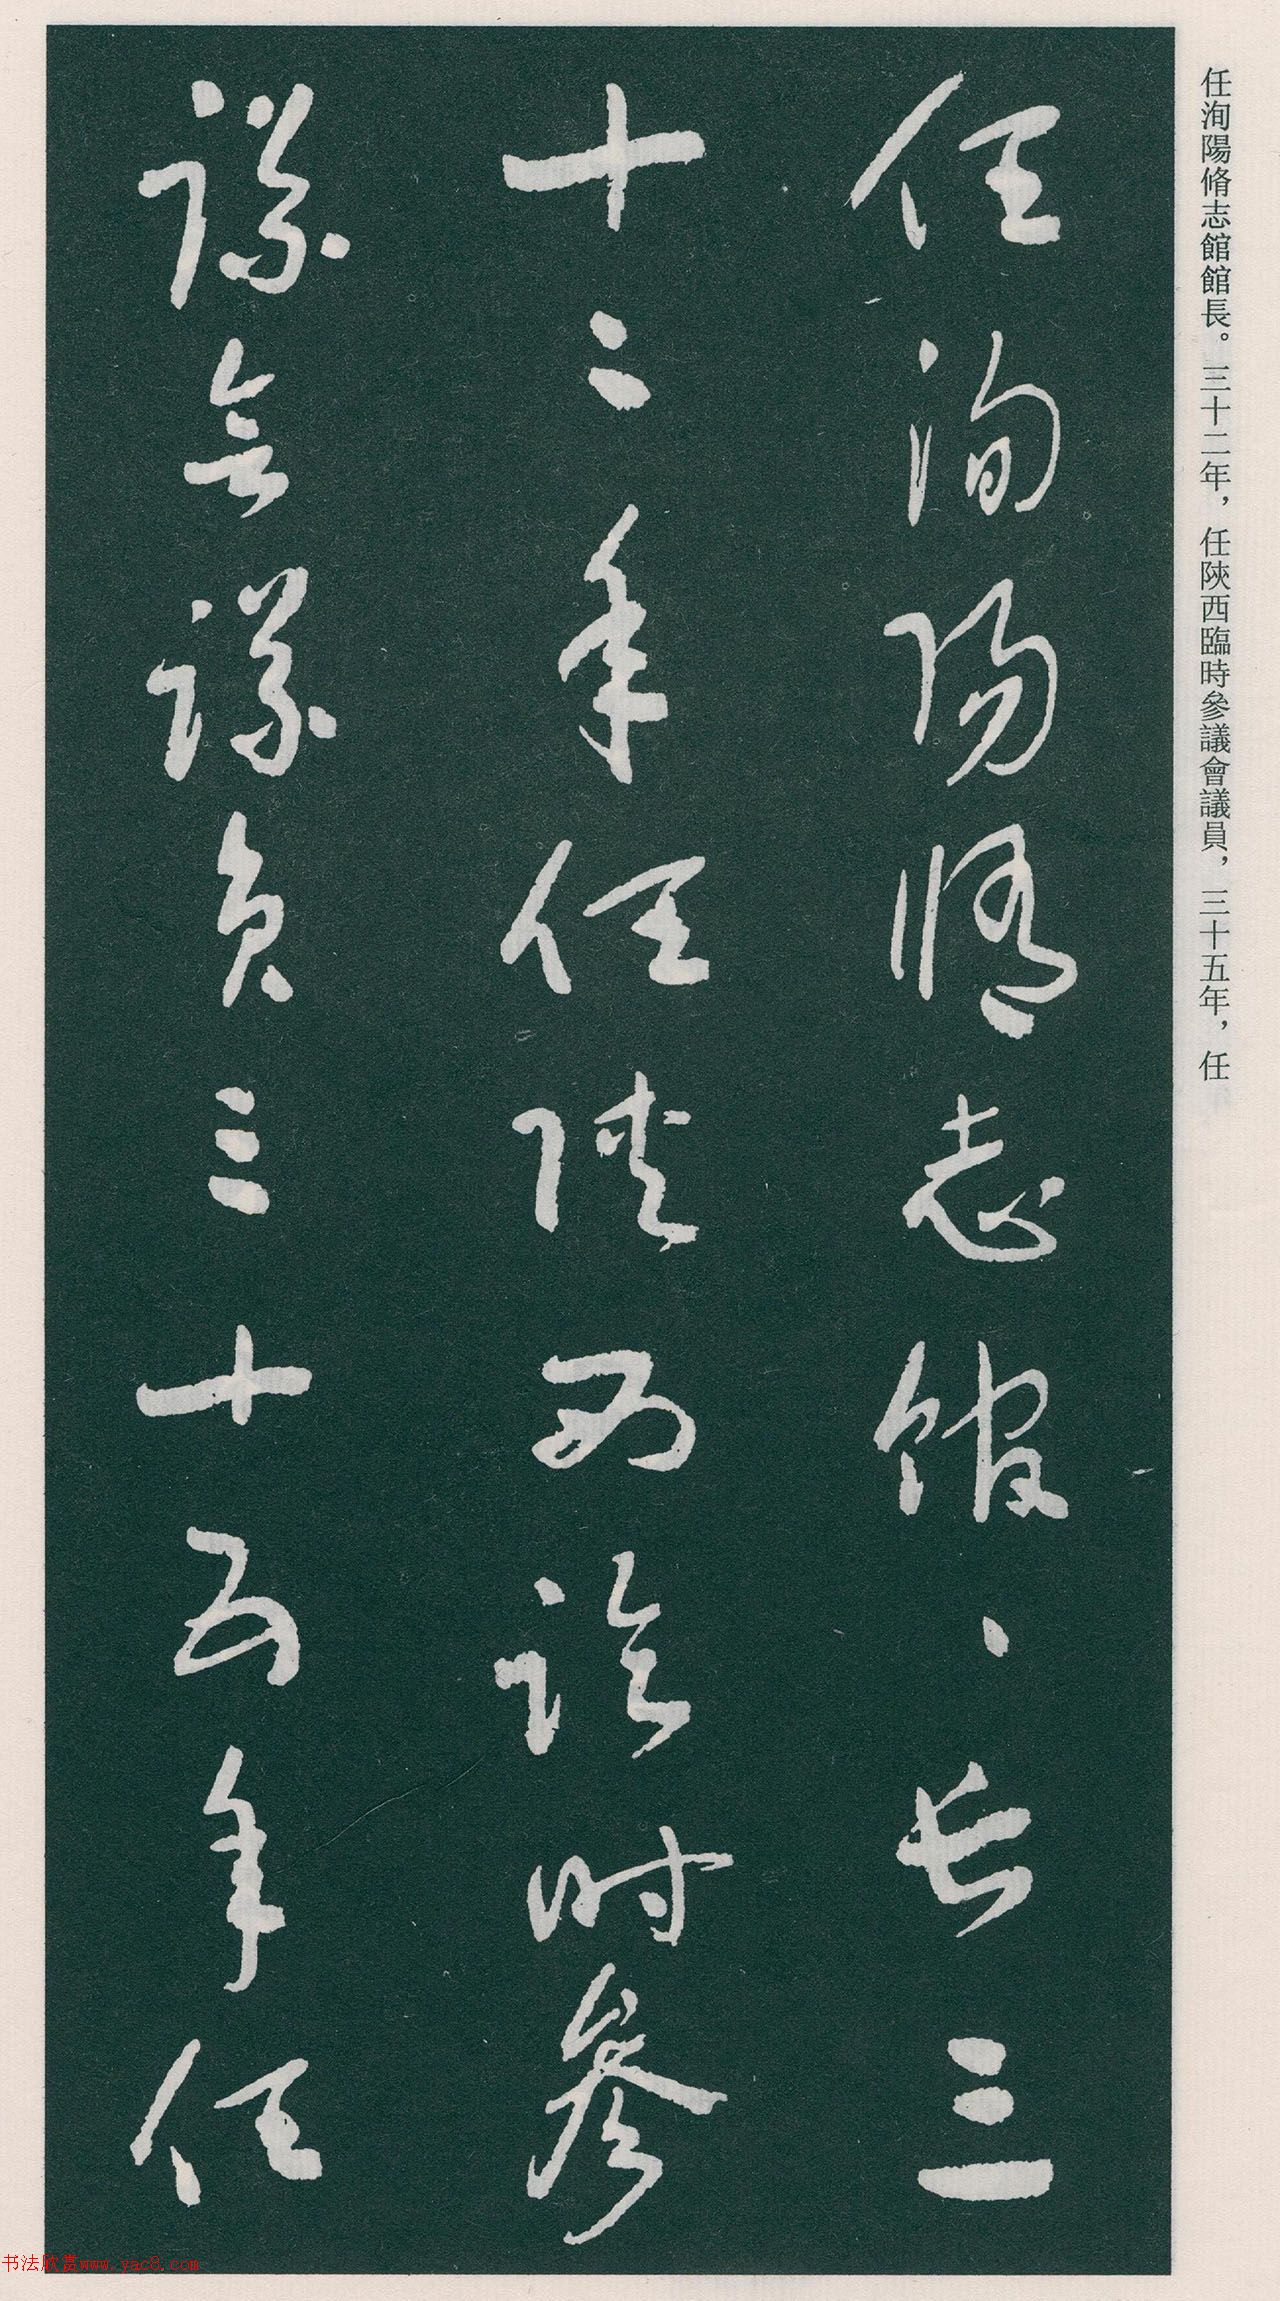 任洵陽脩志館館長。三十二年，任陝西臨時參議會議員，三十五年，任
任洵陽脩志館、長三
十二年任陝西臨時參
議會議員三十五年任
书法欣赏www.yac8.com